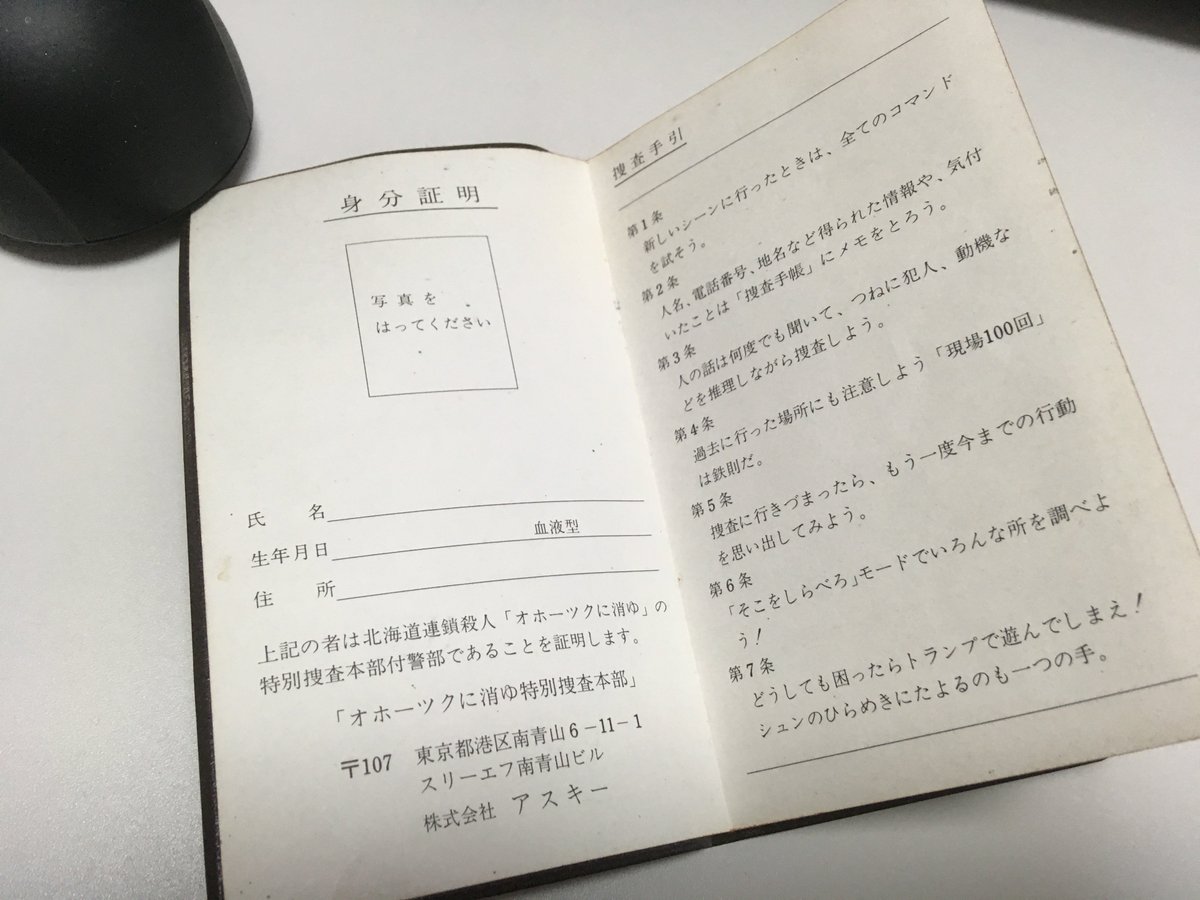 身分証明
写真を
はってください
氏　名
生年月日　血液型
住　所
上記の者は北海道連鎖殺人「オホーツクに消ゆ」の
特別捜査本部付警部であることを証明します。
「オホーツクに消ゆ特別捜査本部」
〒107　東京都港区南青山6-11-1
スリーエフ南青山ビル
株式会社　アスキー
捜査手引
第1条
新しいシーンに行ったときは、全てのコマンド
を試そう。
第2条
人名、電話番号、地名など得られた情報や、気付
いたことは「捜査手帳」にメモをとろう。
第3条
人の話は何度でも聞いて、つねに犯人、動機な
どを推理しながら捜査しよう。
第4条
過去に行った場所にも注意しよう「現場100回」
は鉄則だ。
第5条
捜査に行きづまったら、もう一度今までの行動
を思い出してみよう。
第6条
「そこをしらべろ」モードでいろんな所を調べよ
う！
第7条
どうしても困ったらトランプで遊んでしまえ！
シュンのひらめきにたよるのも一つの手。